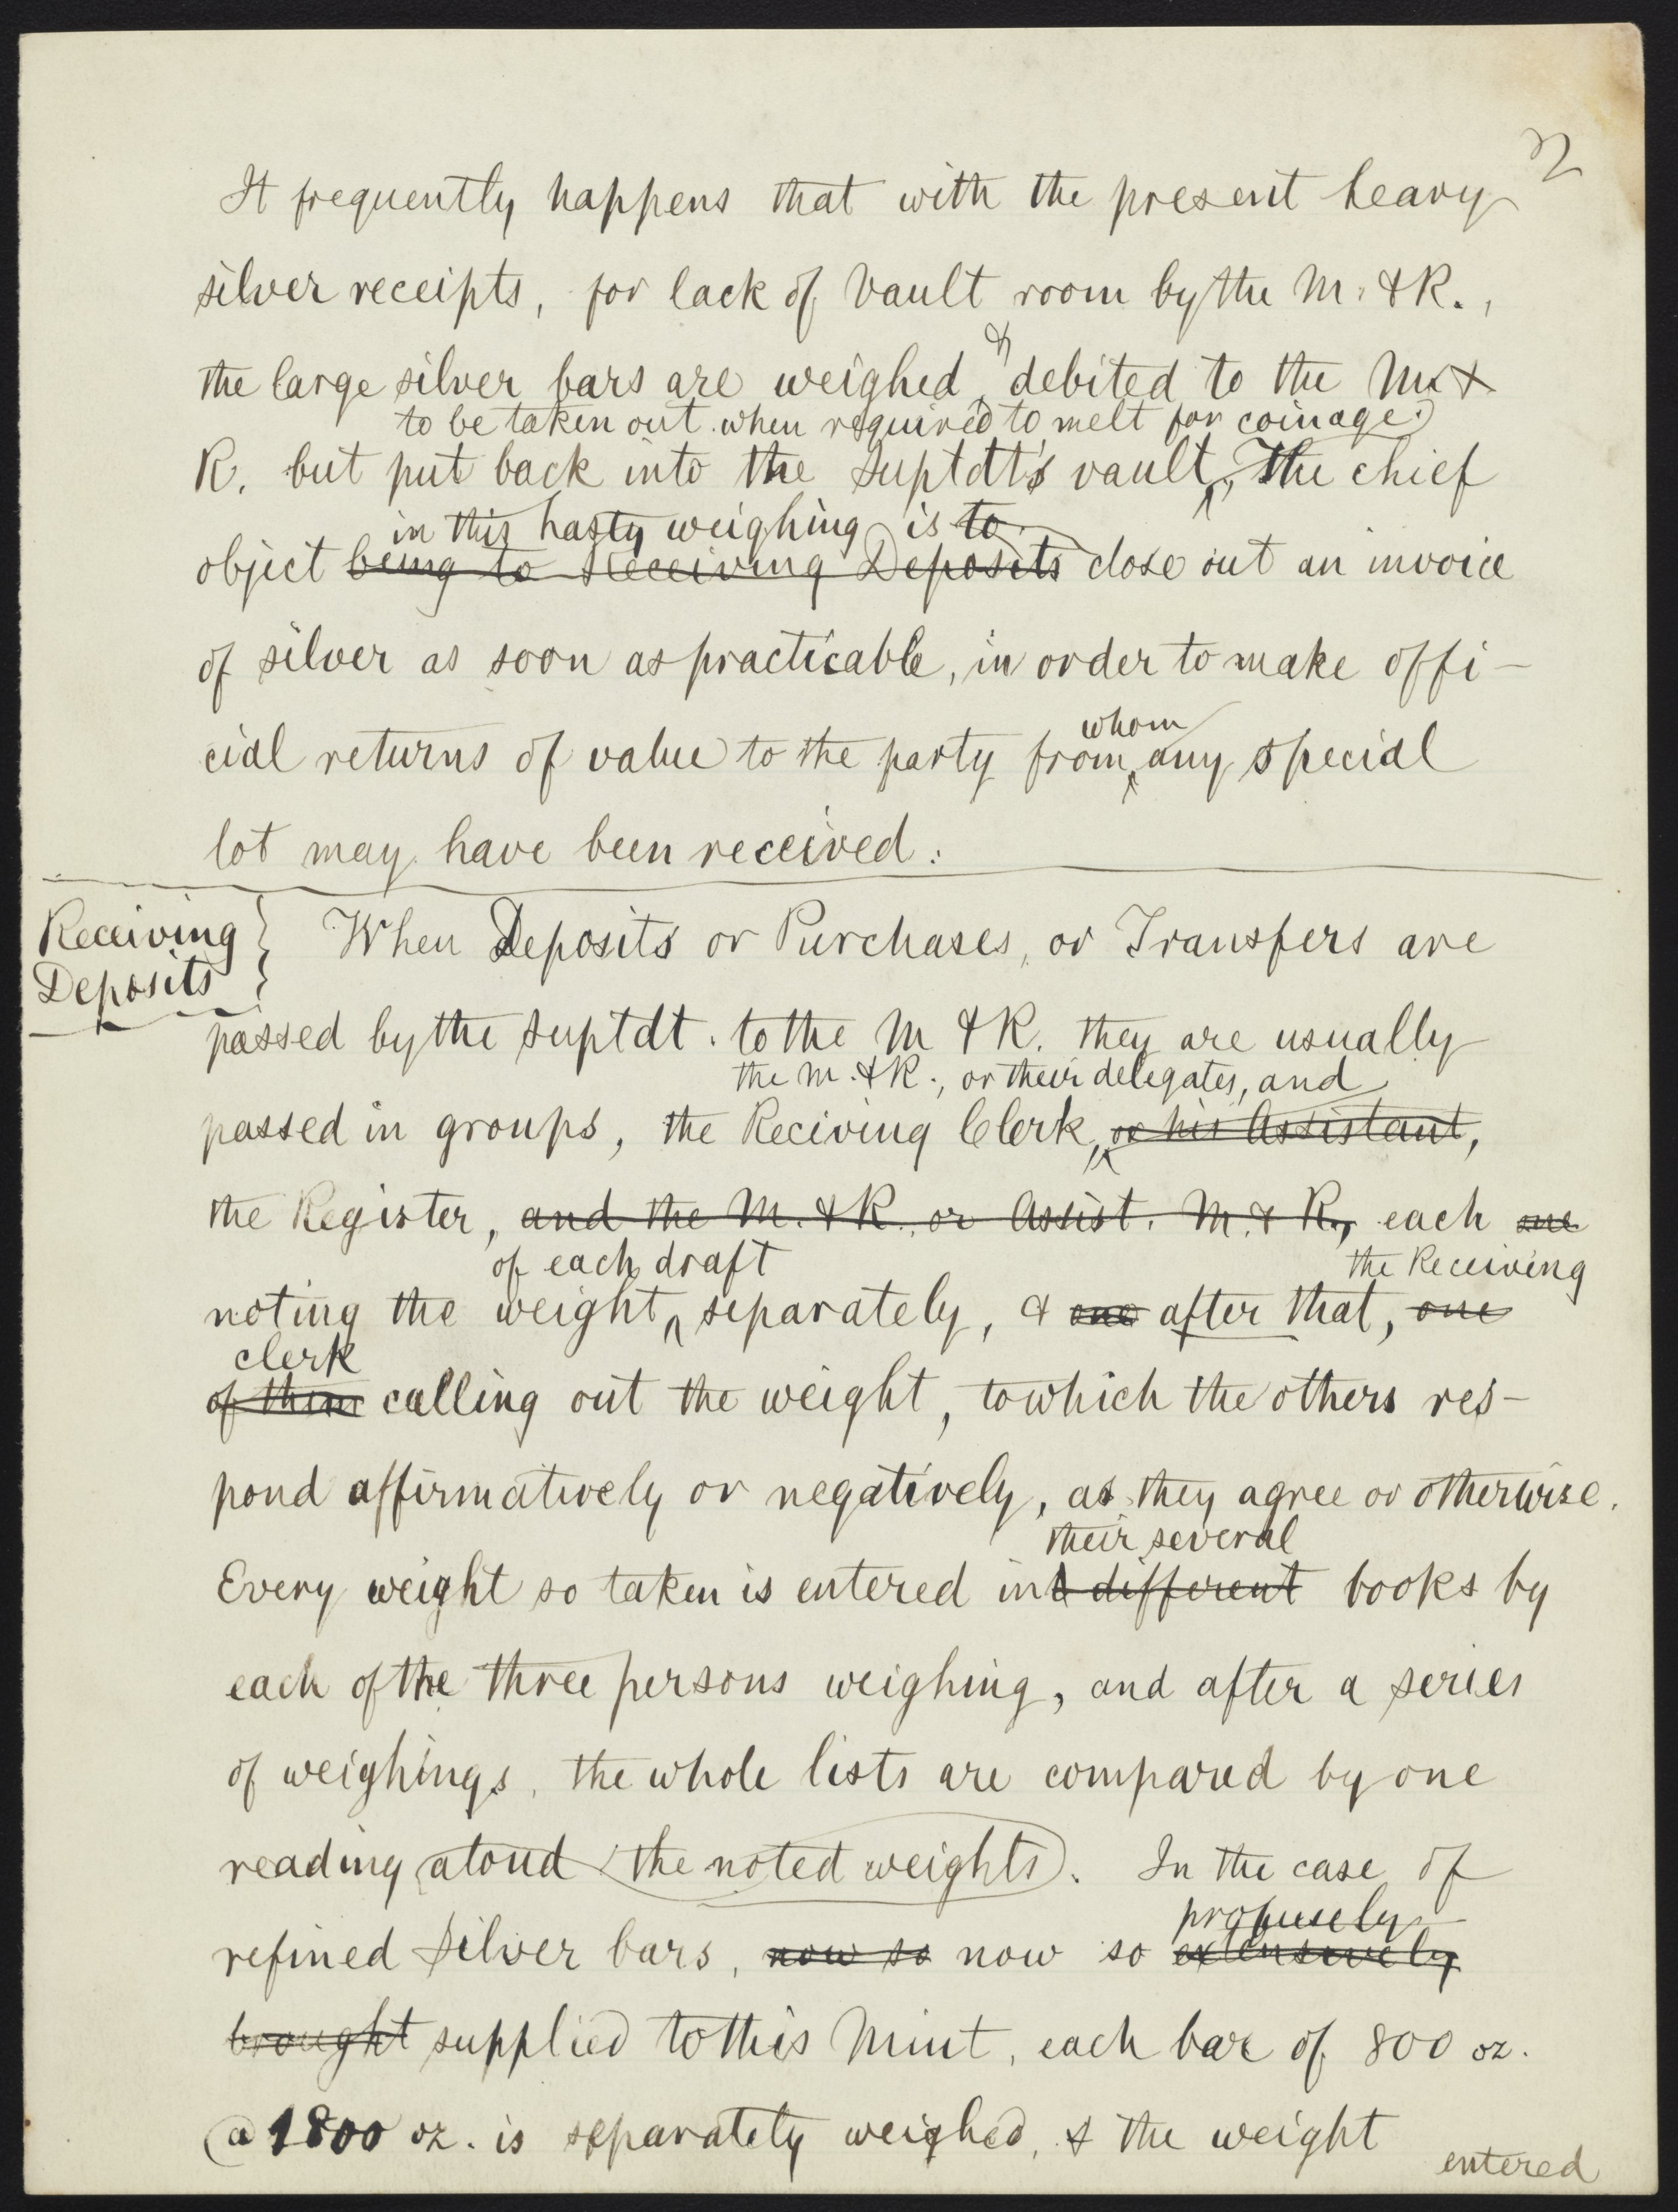 32
It frequently happens that with the present heavy
silver receipts, for lack of vault room by the M. & R.,
&
the large silver bars are weighed, debited to the M. &
to be taken out when required to melt for coinage.
R. but put back into the Suptdt's vault, The chief
in this hasty weighing is to
object being to Receiving Deposits close out an invoice
of silver as soon as practicable, in order to make offi-
whom
cial returns of value to the party from any special
lot may have been received.
Receiving
Deposits
When Deposits or Purchases, or Transfers are
passed by the Suptdt. to the M & R. they are usually
the M. & R., or their delegates, and
passed in groups, the Reciving Clerk, or his Assistant,
the Register, and the M. & R. or Assist. M. & R., each one
of each draft the Receiving
noting the weight, separately, & one after that, one
clerk
of them calling out the weight, to which the others res-
pond affirmatively or negatively, as they agree or otherwise.
their several
Every weight so taken is entered in different books by
each of the three persons weighing, and after a series
of weighings, the whole lists are compared by one
reading aloud (the noted weights). In the case of
profusely
refined silver bars, now so now so extensively
brought supplied to this Mint, each bar of 800 oz.
@ 1800 oz. is separately weighed, & the weight
entered